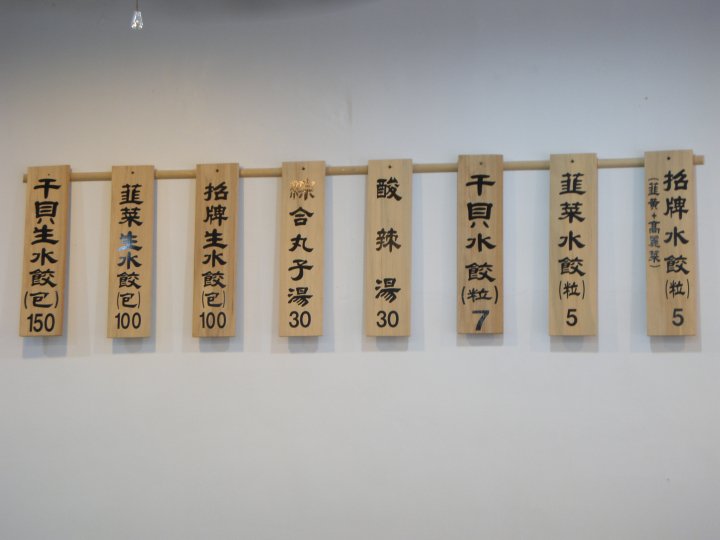 招牌水餃(粒)
(韮黃+高麗菜)
5
韮菜水餃(粒)
5
干貝水餃(粒)
7
酸辣湯
30
綜合丸子湯
30
招牌生水餃(包)
100
韮菜生水餃(包)
100
干貝生水餃(包)
150